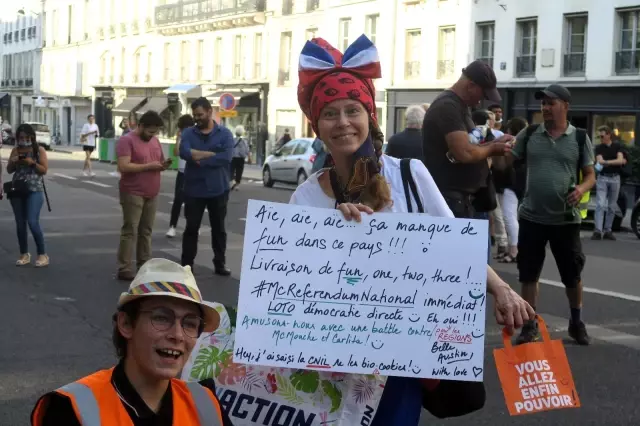 Aïe, aïe, aïe... ça manque de
fun dans ce pays !!!
Livraison de fun, one, two, three !
#McReferendumNational immédiat !
LOTO démocratie directe Eh oui !!!
Amusons-nous avec une battle entre
McMouche et Carlita !
pour les
RÉGIONS
Hey, j'ai saisi la CNIL re les bio-cookies !
Belle
Austin
With love
ACTION
VOUS
ALLEZ
ENFIN
POUVOIR